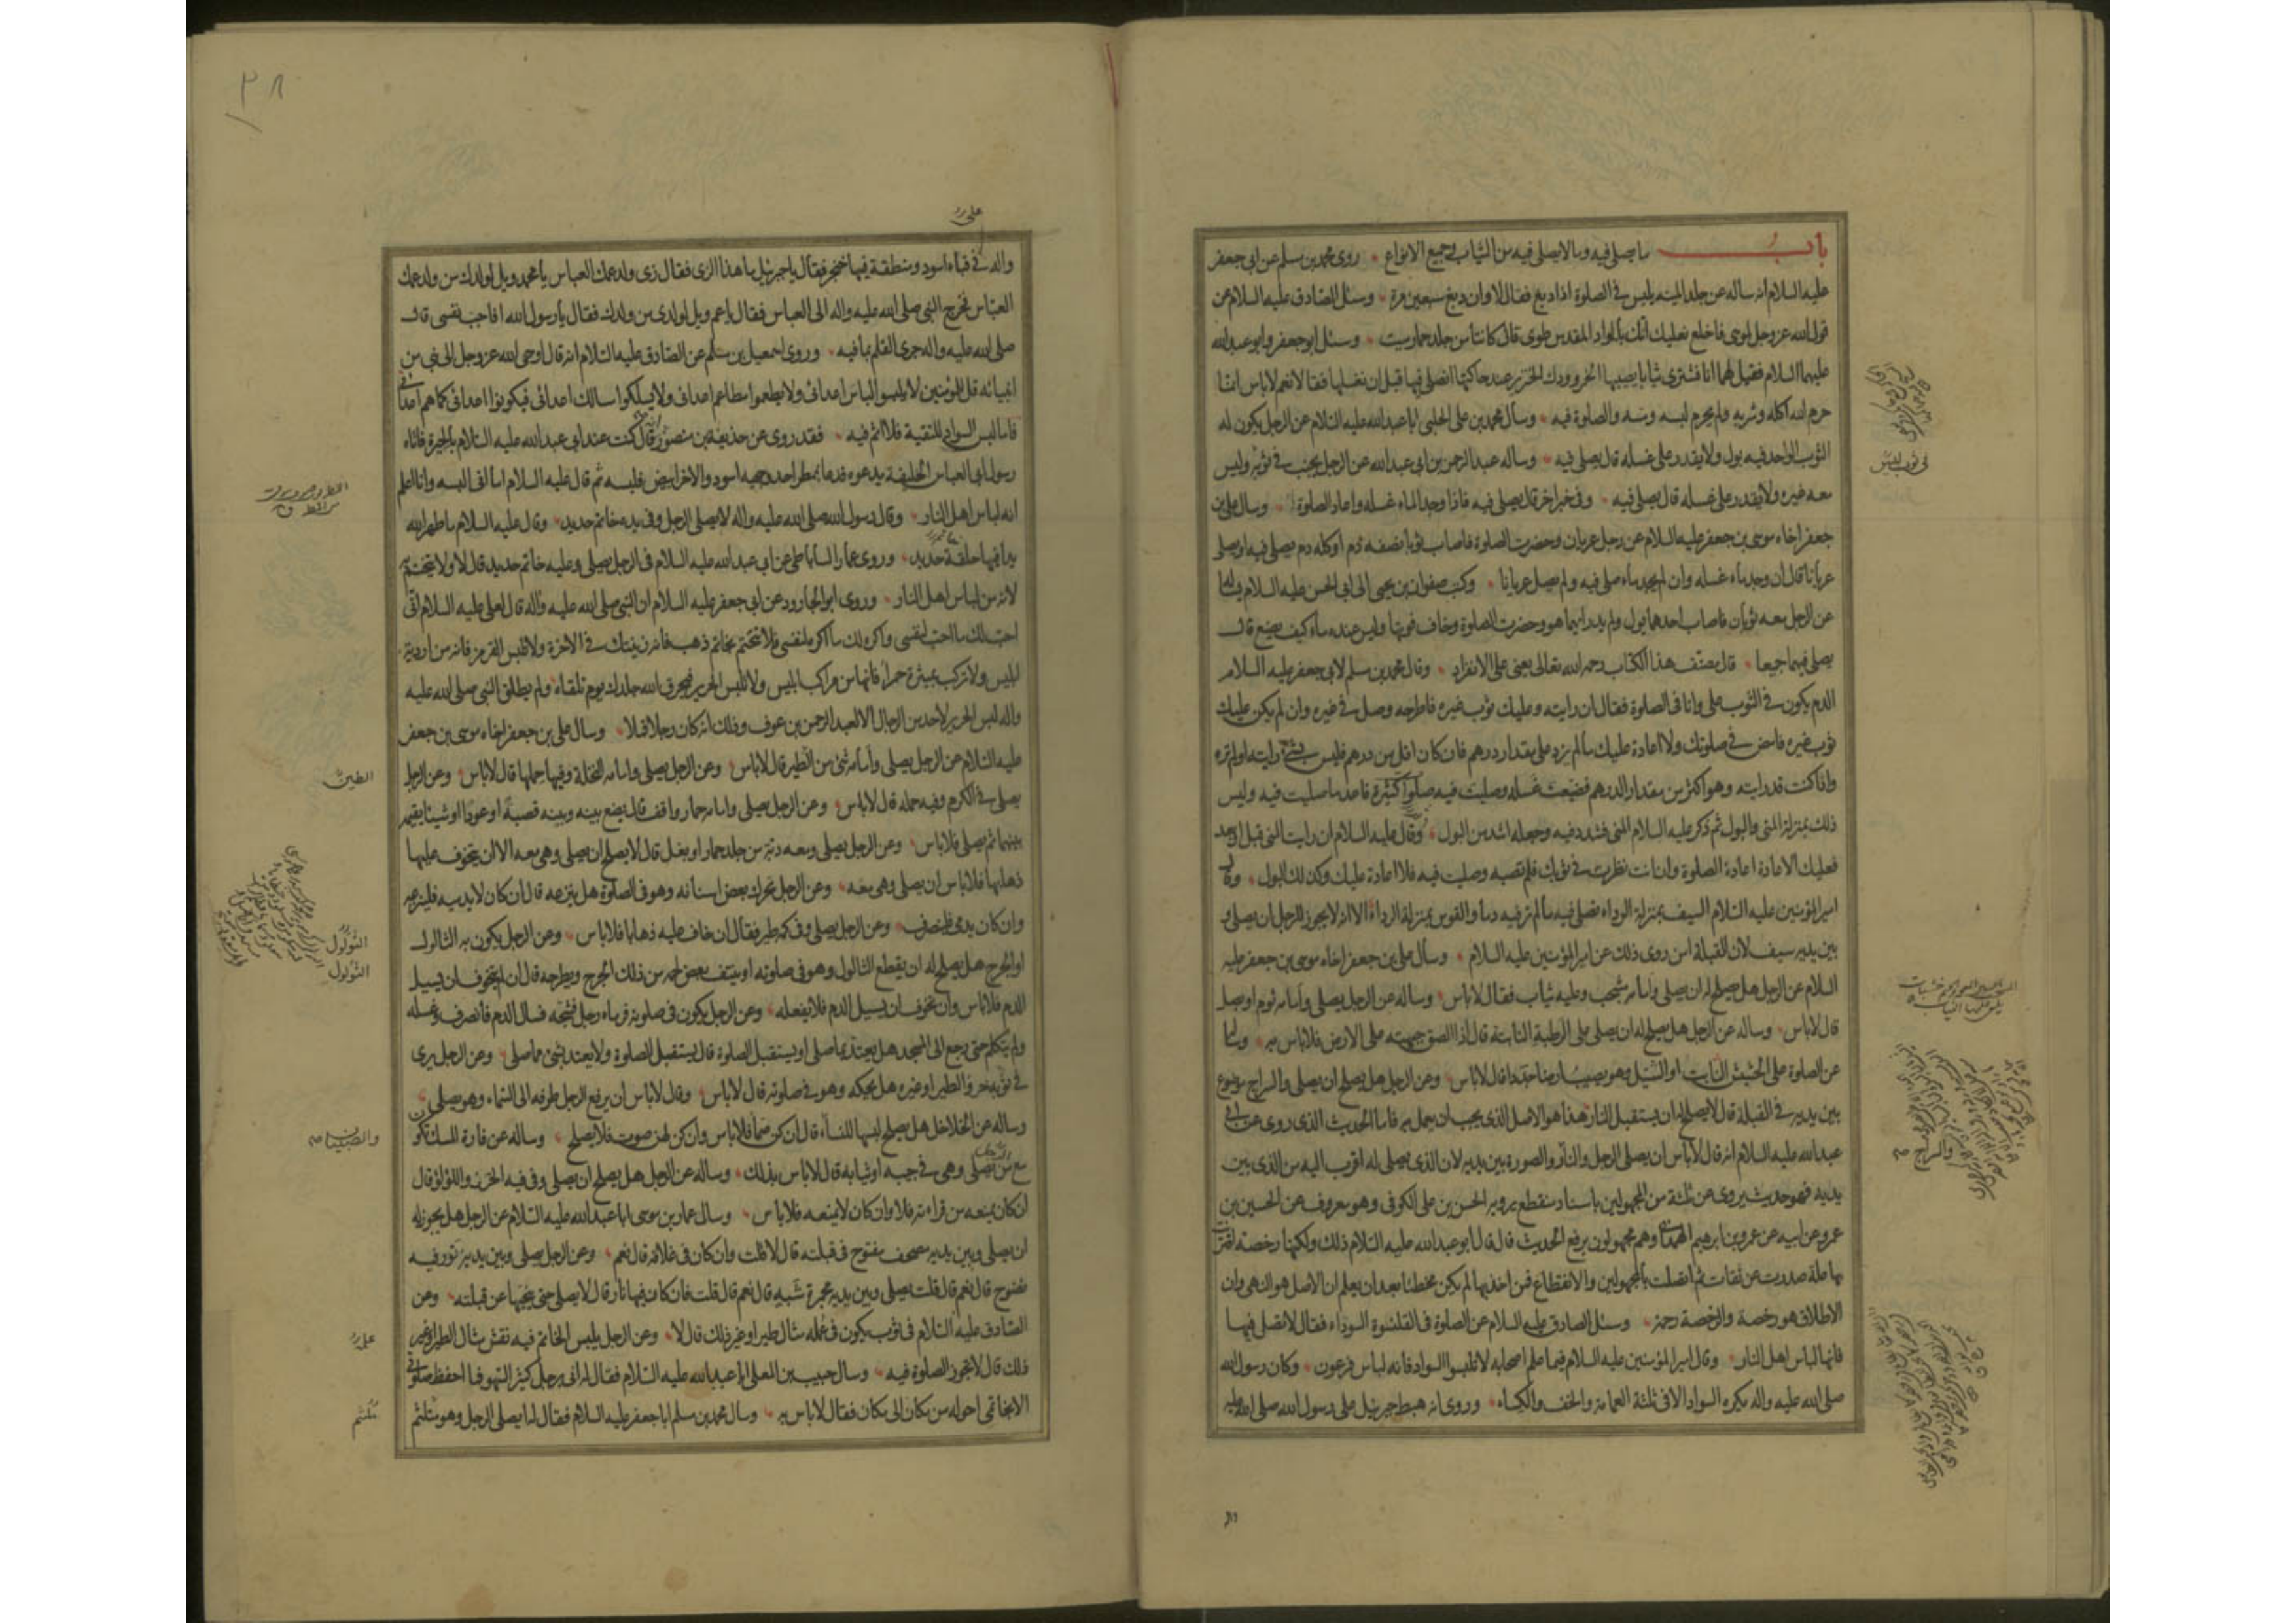 باب ما يصلى فيه وما لا يصلى فيه من الثياب في جميع الانواع روى محمد بن مسلم عن ابي جعفر
عليه السلام انه ساله عن جلد الميته يلبس في الصلوة اذا دبغ فقال لا وان دبغ سبعين مرة وسئل الصادق عليه السلام عن
قول الله عز وجل لموسى فاخلع نعليك انك بالواد المقدس طوى قال كانتا من جلد حمار ميت وسئل ابو جعفر وابو عبد الله
عليهما السلام فقيل لهما انا نشترى ثيابا يصيبها الخمر وودك الخنزير عند حاكتها انصلى فيها قبل ان نغسلها فقالا نعم لا باس انما
حرم الله اكله وشربه ولم يحرم لبسه ومسه والصلوة فيه وسال محمد بن على الحلبى ابا عبد الله عليه السلام عن الرجل يكون له
الثوب الواحد فيه بول ولا يقدر على غسله قال يصلى فيه وساله عبد الرحمن بن ابى عبد الله عن الرجل يجنب في ثوبه وليس
معه غيره ولا يقدر على غسله قال يصلى فيه وفى خبر اخر قال يصلى فيه فاذا وجد الماء غسله واعاد الصلوة وسال على بن
جعفر اخاه موسى بن جعفر عليه السلام عن رجل عريان وحضرت الصلوة فاصاب ثوبا نصفه دم او كله دم يصلى فيه او يصلى
عريانا قال ان وجد ماء غسله وان لم يجد ماء صلى فيه ولم يصل عريانا وكتب صفوان بن يحيى الى ابى الحسن عليه السلام يساله
عن الرجل معه ثوبان فاصاب احدهما بول ولم يدر ايهما هو وحضرت الصلوة وخاف فوتها وليس عنده ماء كيف يصنع قال
يصلى فيهما جميعا قال مصنف هذا الكتاب رحمه الله تعالى يعنى على الانفراد وقال محمد بن مسلم لابى جعفر عليه السلام
الدم يكون في الثوب على وانا فى الصلوة فقال ان رايته وعليك ثوب غيره فاطرحه وصل في غيره وان لم يكن عليك
ثوب غيره فامض في صلوتك ولا اعادة عليك ما لم يزد على مقدار درهم فان كان اقل من درهم فليس بشئ رايته او لم تره
واذا كنت قد رايته وهو اكثر من مقدار الدرهم فضيعت غسله وصليت فيه صلوات كثيرة فاعد ما صليت فيه وليس
ذلك بمنزلة المنى والبول ثم ذكر عليه السلام المنى فشدد فيه وجعله اشد من البول وقال عليه السلام ان رايت المنى قبل او بعد
فعليك الاعادة اعادة الصلوة وان انت نظرت في ثوبك فلم تصبه وصليت فيه فلا اعادة عليك وكذلك البول وقال
امير المؤمنين عليه السلام السيف بمنزلة الرداء تصلى فيه ما لم تر فيه دما والقوس بمنزلة الرداء الا انه لا يجوز للرجل ان يصلى و
بين يديه سيف لان القبلة امن روى ذلك عن امير المؤمنين عليه السلام وسال على بن جعفر اخاه موسى بن جعفر عليه
السلام عن الرجل هل يصلح له ان يصلى وامامه مشجب وعليه ثياب فقال لا باس وساله عن الرجل يصلى وامامه ثوم او بصل
قال لا باس وساله عن الرجل هل يصلح له ان يصلى على الرطبة النابتة قال اذا الصق جبهته على الارض فلا باس به وساله
عن الصلوة على الحشيش النابت او الثيل وهو يصيب ارضا جددا قال لا باس وعن الرجل هل يصلح ان يصلى والسراج موضوع
بين يديه في القبلة قال لا يصلح له ان يستقبل النار هذا هو الاصل الذى يجب ان يعمل به فاما الحديث الذى روى عن ابى
عبد الله عليه السلام انه قال لا باس ان يصلى الرجل والنار والصورة بين يديه لان الذى يصلى له اقرب اليه من الذى بين
يديه فهو حديث يروى عن ثلثة من المجهولين باسناد منقطع يرويه الحسن بن على الكوفى وهو معروف عن الحسين بن
عمرو عن ابيه عن عمرو بن ابرهيم الهمدانى وهم مجهولون يرفع الحديث قال قال ابو عبد الله عليه السلام ذلك ولكنها رخصة اقترنت
بها علة صدرت عن ثقات ثم اتصلت بالمجهولين والانقطاع فمن اخذ بها لم يكن مخطئا بعد ان يعلم ان الاصل هو النهى وان
الاطلاق هو رخصة والرخصة رحمة وسئل الصادق عليه السلام عن الصلوة فى القلنسوة السوداء فقال لا تصل فيها
فانها لباس اهل النار وقال امير المؤمنين عليه السلام فيما علم اصحابه لا تلبسوا السواد فانه لباس فرعون وكان رسول الله
صلى الله عليه واله يكره السواد الا فى ثلثة العمامة والخف والكساء وروى انه هبط جبرئيل على رسول الله صلى الله عليه
واله
٣٨
واله في قباء اسود ومنطقة فيها خنجر فقال يا جبرئيل ما هذا الزى فقال زى ولد عمك العباس يا محمد ويل لولدك من ولد عمك
العباس فخرج النبى صلى الله عليه واله الى العباس فقال يا عم ويل لولدى من ولدك فقال يا رسول الله افاجب نفسى قال
صلى الله عليه واله جرى القلم بما فيه وروى اسمعيل بن مسلم عن الصادق عليه السلام انه قال اوحى الله عز وجل الى نبى من
انبيائه قل للمؤمنين لا يلبسوا لباس اعدائى ولا يطعموا مطاعم اعدائى ولا يسلكوا مسالك اعدائى فيكونوا اعدائى كما هم اعدائى
فاما لبس السواد للتقية فلا اثم فيه فقد روى عن حذيفة بن منصور قال كنت عند ابى عبد الله عليه السلام بالحيرة فاتاه
رسول ابى العباس الخليفة يدعوه فدعا بممطر احد وجهيه اسود والاخر ابيض فلبسه ثم قال عليه السلام اما انى البسه وانا اعلم
انه لباس اهل النار وقال رسول الله صلى الله عليه واله لا يصلى الرجل وفى يده خاتم حديد وقال عليه السلام ما طهر الله
يدا فيها حلقة حديد وروى عمار الساباطى عن ابى عبد الله عليه السلام فى الرجل يصلى وعليه خاتم حديد قال لا ولا يتختم به
لانه من لباس اهل النار وروى ابو الجارود عن ابى جعفر عليه السلام ان النبى صلى الله عليه واله قال لعلى عليه السلام انى
احب لك ما احب لنفسى واكره لك ما اكره لنفسى فلا تتختم بخاتم ذهب فانه زينتك في الاخرة ولا تلبس القرمز فانه من اردية
ابليس ولا تركب بميثرة حمراء فانها من مراكب ابليس ولا تلبس الحرير فيحرق الله جلدك يوم تلقاه ولم يطلق النبى صلى الله عليه
واله لبس الحرير لاحد من الرجال الا لعبد الرحمن بن عوف وذلك انه كان رجلا قملا وسال على بن جعفر اخاه موسى بن جعفر
عليه السلام عن الرجل يصلى وامامه شئ من الطير قال لا باس وعن الرجل يصلى وامامه النخلة وفيها حملها قال لا باس وعن الرجل
يصلى في الكرم وفيه حمله قال لا باس وعن الرجل يصلى وامامه حمار واقف قال يضع بينه وبينه قصبة او عودا او شيئا يقيمه
بينهما ثم يصلى فلا باس وعن الرجل يصلى ومعه دبة من جلد حمار او بغل قال لا يصلح ان يصلى وهى معه الا ان يتخوف عليها
ذهابها فلا باس ان يصلى وهى معه وعن الرجل تحرك بعض اسنانه وهو فى الصلوة هل ينزعه قال ان كان لا يدميه فلينزعه
وان كان يدمى فلينصرف وعن الرجل يصلى وفى كمه طير فقال ان خاف عليه ذهابا فلا باس وعن الرجل يكون به الثالول
او الجرح هل يصلح له ان يقطع الثالول وهو فى صلوته او ينتف بعض لحمه من ذلك الجرح ويطرحه قال ان لم يتخوف ان يسيل
الدم فلا باس وان تخوف ان يسيل الدم فلا يفعله وعن الرجل يكون فى صلوته فرماه رجل فشجه فسال الدم فانصرف وغسله
ولم يتكلم حتى رجع الى المسجد هل يعتد بما صلى او يستقبل الصلوة قال يستقبل الصلوة ولا يعتد بشئ مما صلى وعن الرجل يرى
في ثوبه خرؤ الطير او غيره هل يحكه وهو في صلوته قال لا باس وقال لا باس ان يرفع الرجل طرفه الى السماء وهو يصلى
وساله عن الخلاخل هل يصلح لبسها للنساء قال ان كن صما فلا باس وان كن لهن صوت فلا يصلح وساله عن فارة المسك تكون
مع من يصلى وهى في جيبه او ثيابه قال لا باس بذلك وساله عن الرجل هل يصلح ان يصلى وفى فيه الخرز واللؤلؤ قال
ان كان يمنعه من قراءته فلا وان كان لا يمنعه فلا باس وسال عمار بن موسى ابا عبد الله عليه السلام عن الرجل هل يجوز له
ان يصلى وبين يديه مصحف مفتوح فى قبلته قال لا قلت وان كان فى غلافه قال نعم وعن الرجل يصلى وبين يديه تور فيه
نضوح قال نعم قال قلت يصلى وبين يديه مجمرة شبه قال نعم قال قلت فان كان فيها نار قال لا يصلى حتى ينحيها عن قبلته وعن
الصادق عليه السلام فى ثوب يكون فى علمه مثال طير او غير ذلك قال لا وعن الرجل يلبس الخاتم فيه نقش مثال الطير او غير
ذلك قال لا تجوز الصلوة فيه وسال حبيب بن المعلى ابا عبد الله عليه السلام فقال له انى رجل كثير السهو فما احفظ صلوتى
الا بخاتمى احوله من مكان الى مكان فقال لا باس به وسال محمد بن مسلم ابا جعفر عليه السلام فقال له ايصلى الرجل وهو متلثم
الطين
الثولول
الثولول